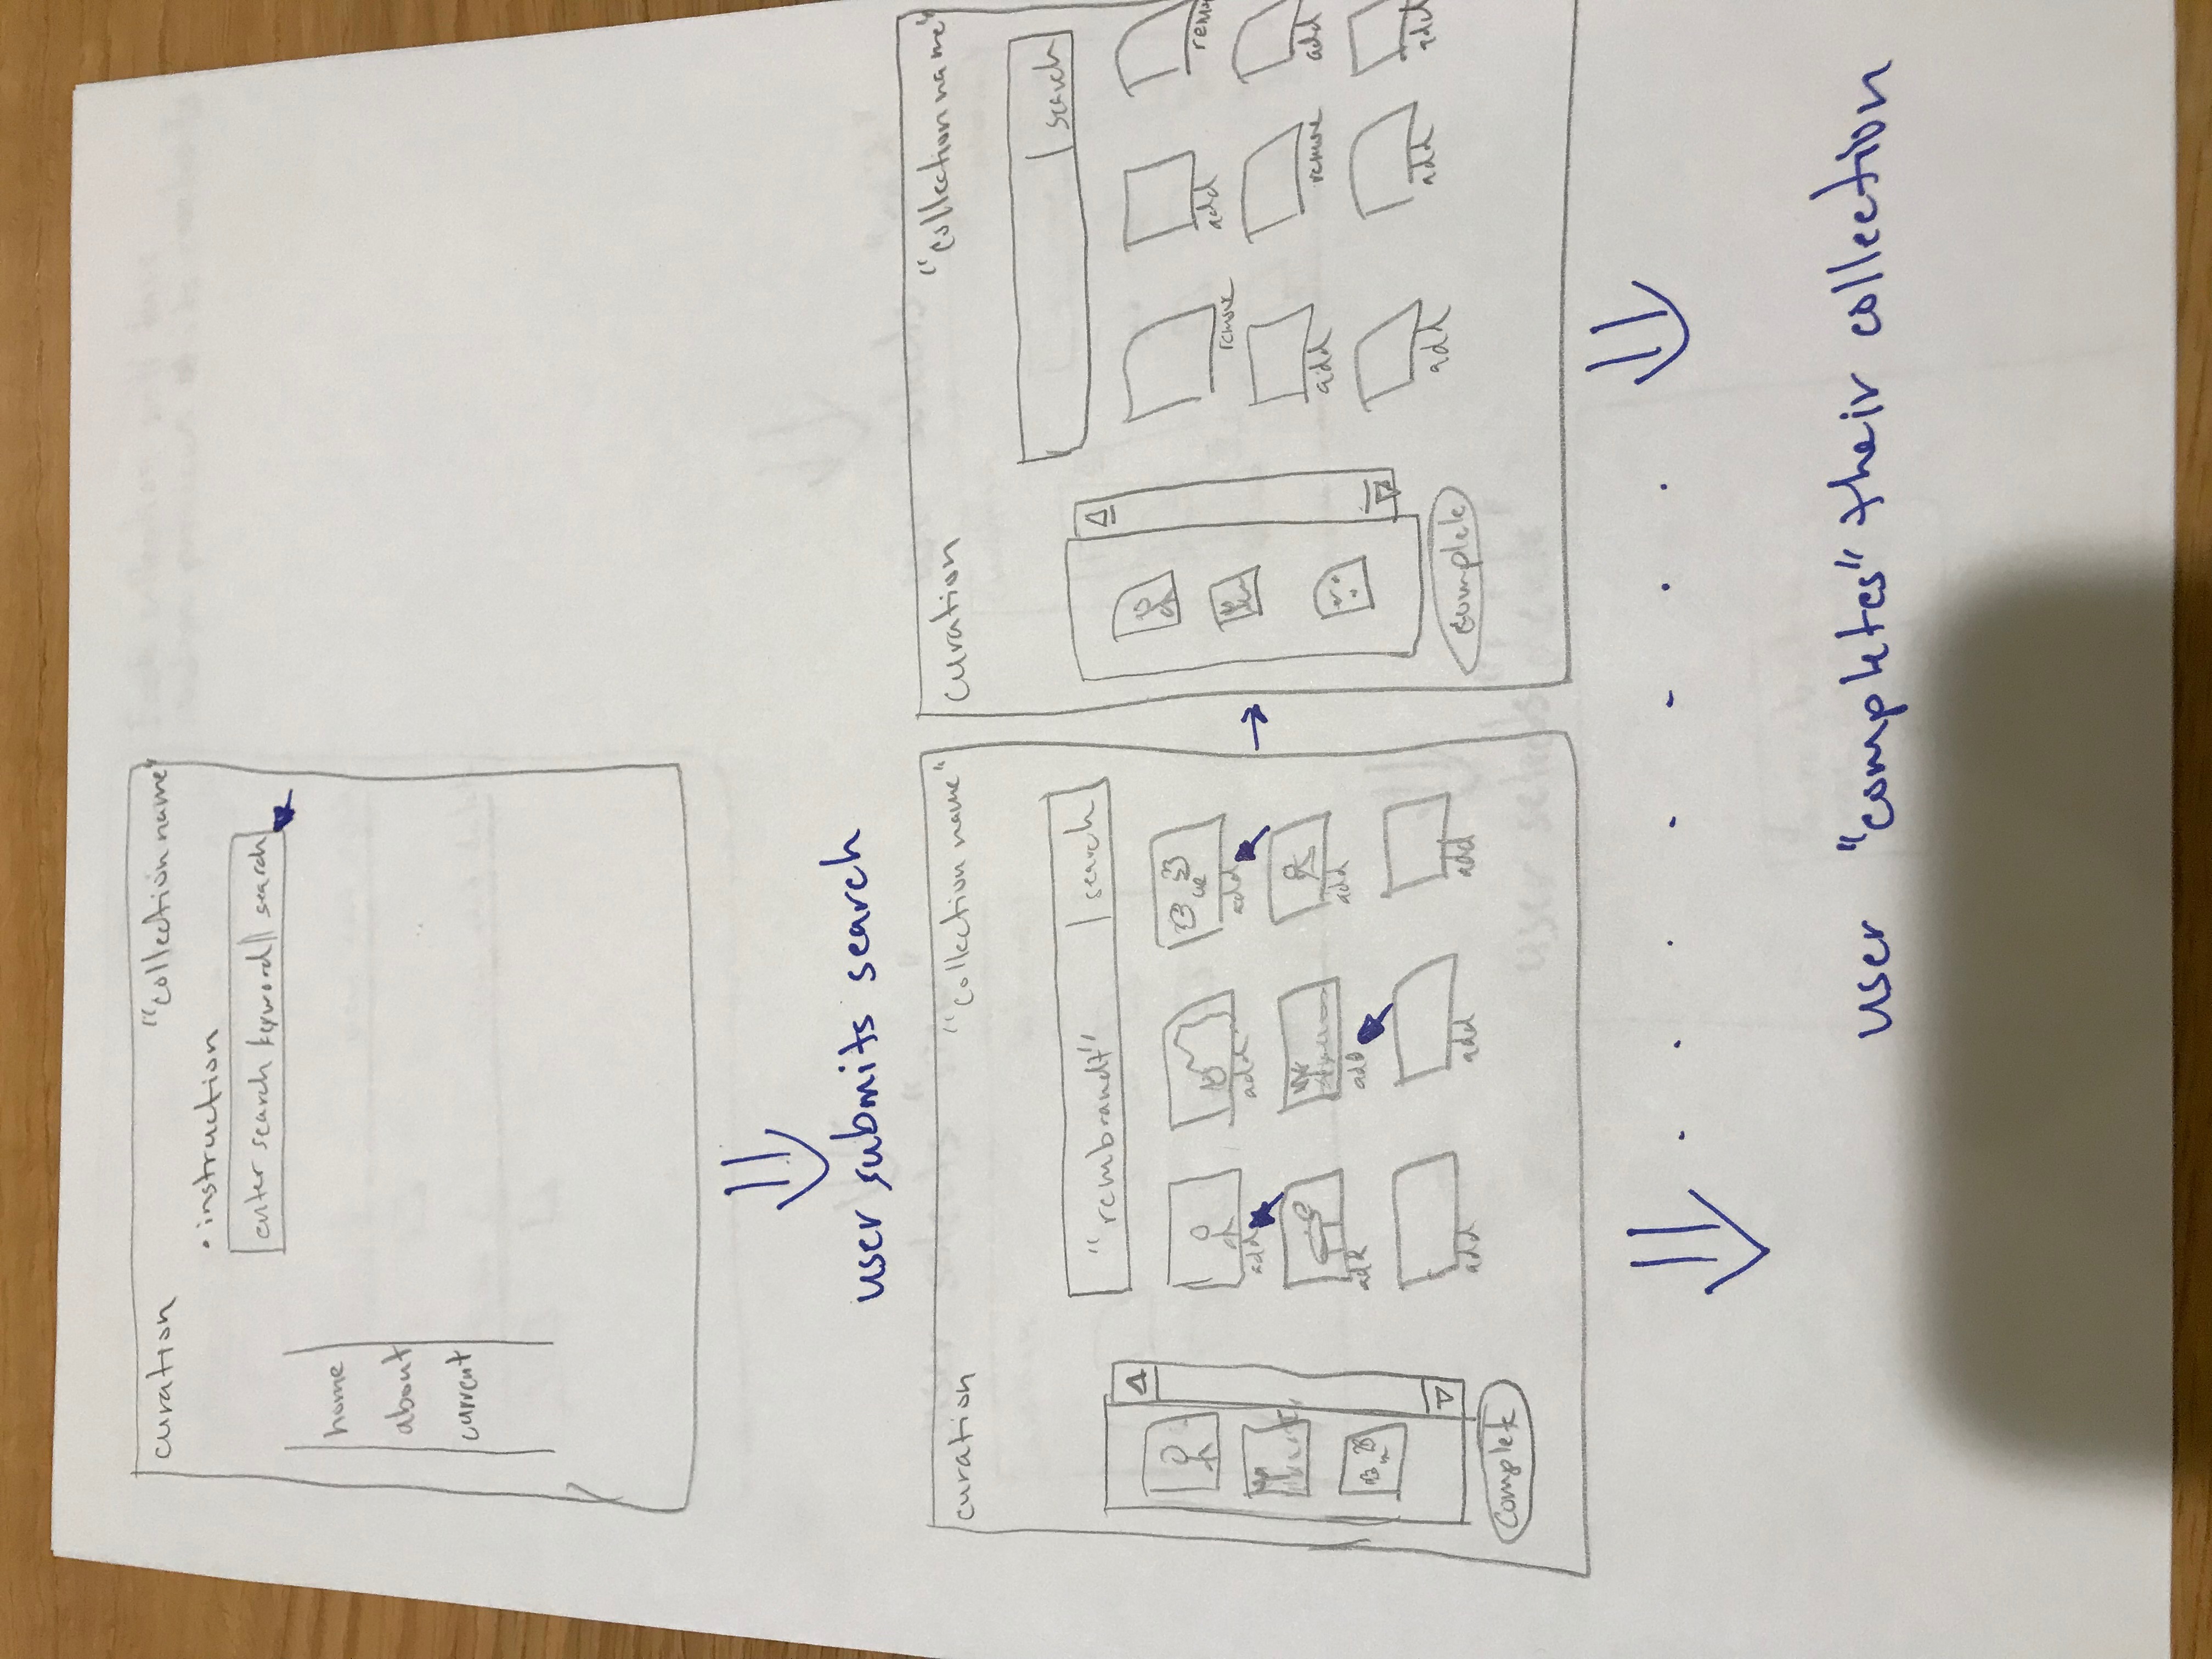 curation "collection name"
• instruction
enter search keyword || search
home
about
current
user submits search
curation "collection name"
"rembrandt" | search
add add add
add add add
add add add
complete
curation "collection name"
search
remove add remo
add remove add
add add add
complete
user "completes" their collection